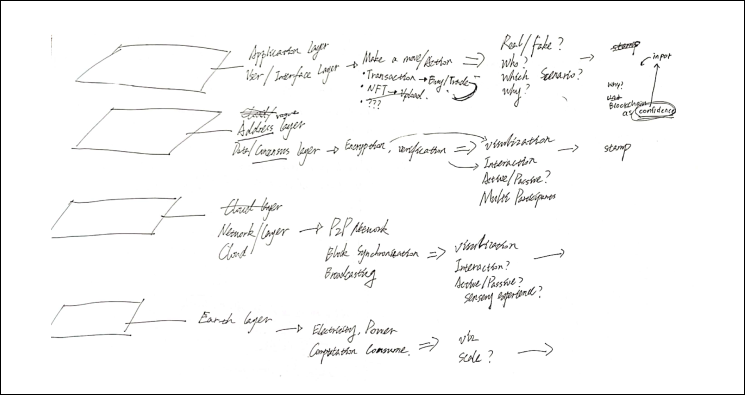 Application layer
User/Interface Layer → Make a move/Action ⇒ Real/fake?
• Transaction → Buy/Trade
• NFT → Upload.
• ???
Who?
Which Scenario?
why?
stamp
input
why?
Blockchain
as confidence
Cloud/vague
Address layer
Data/Consensus layer → Encryption, verification ⇒ visulization
Interaction
Active/Passive?
Multi Participants
→ stamp
Cloud layer
Network/Layer → P2P Network
Cloud
Block Synchronization ⇒ visulization
Broadcasting
Interaction?
Active/Passive?
sensory experience?
Earth layer → Electricity, Power
Computation Consume. ⇒ viz
scale?